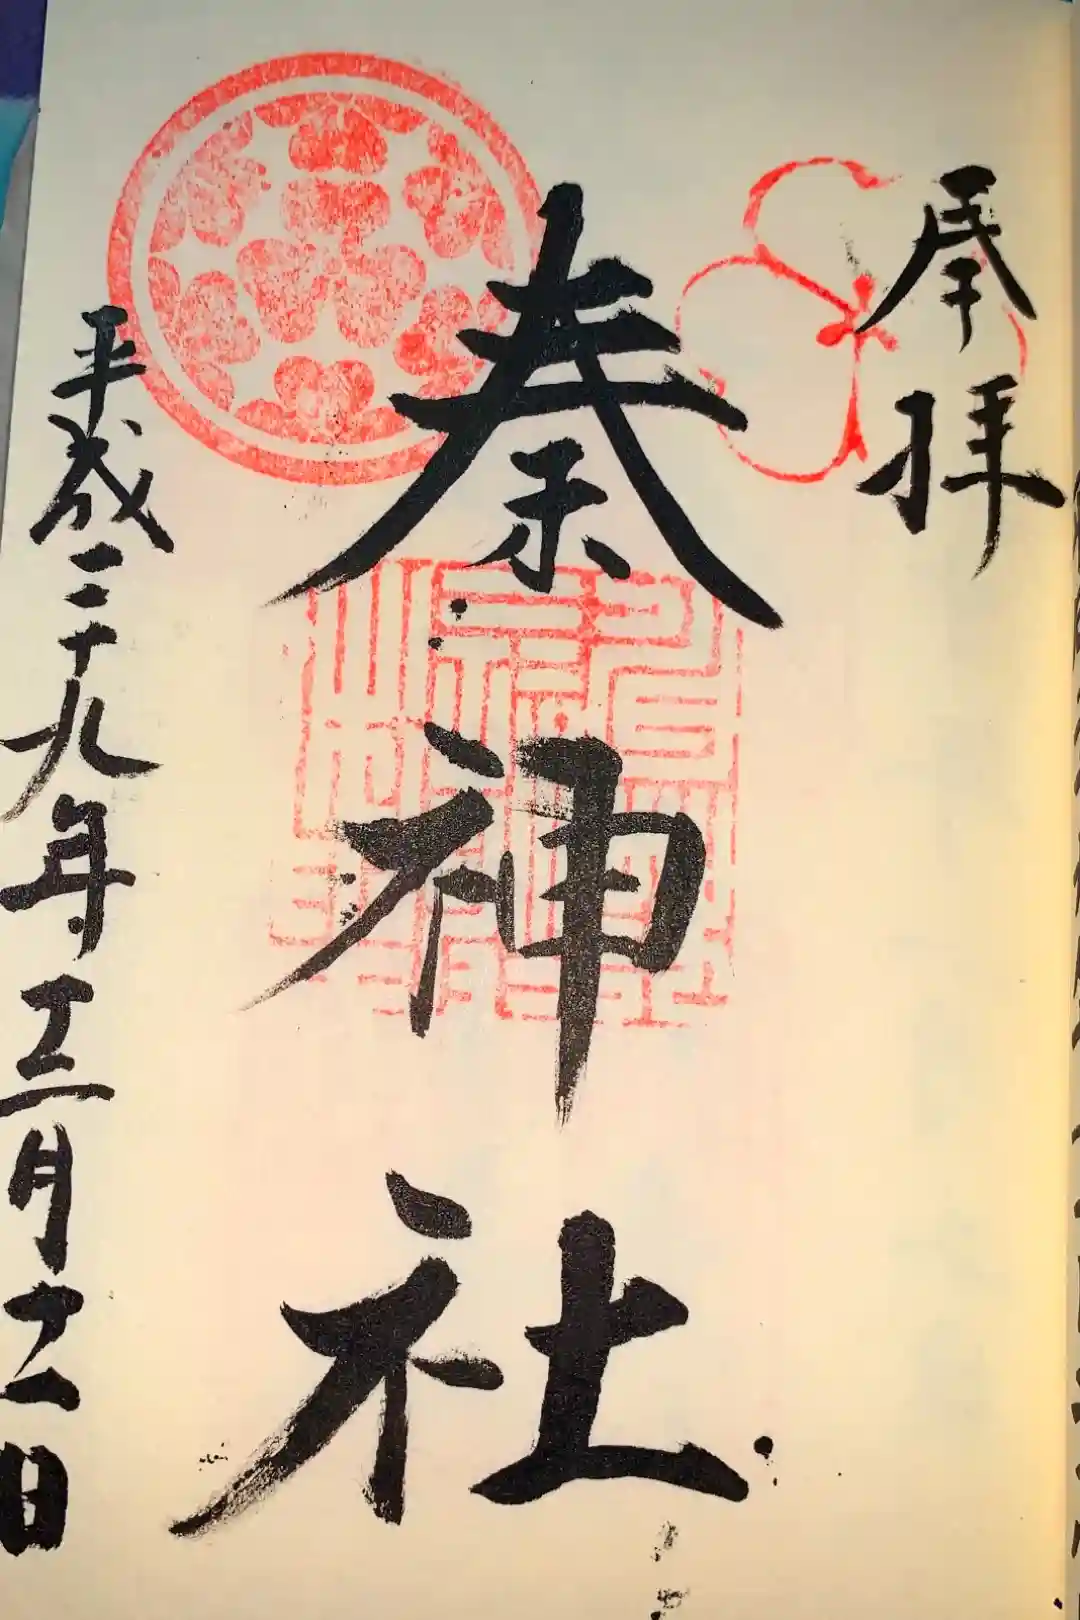 奉拝
秦神社
平成二十九年 月 日